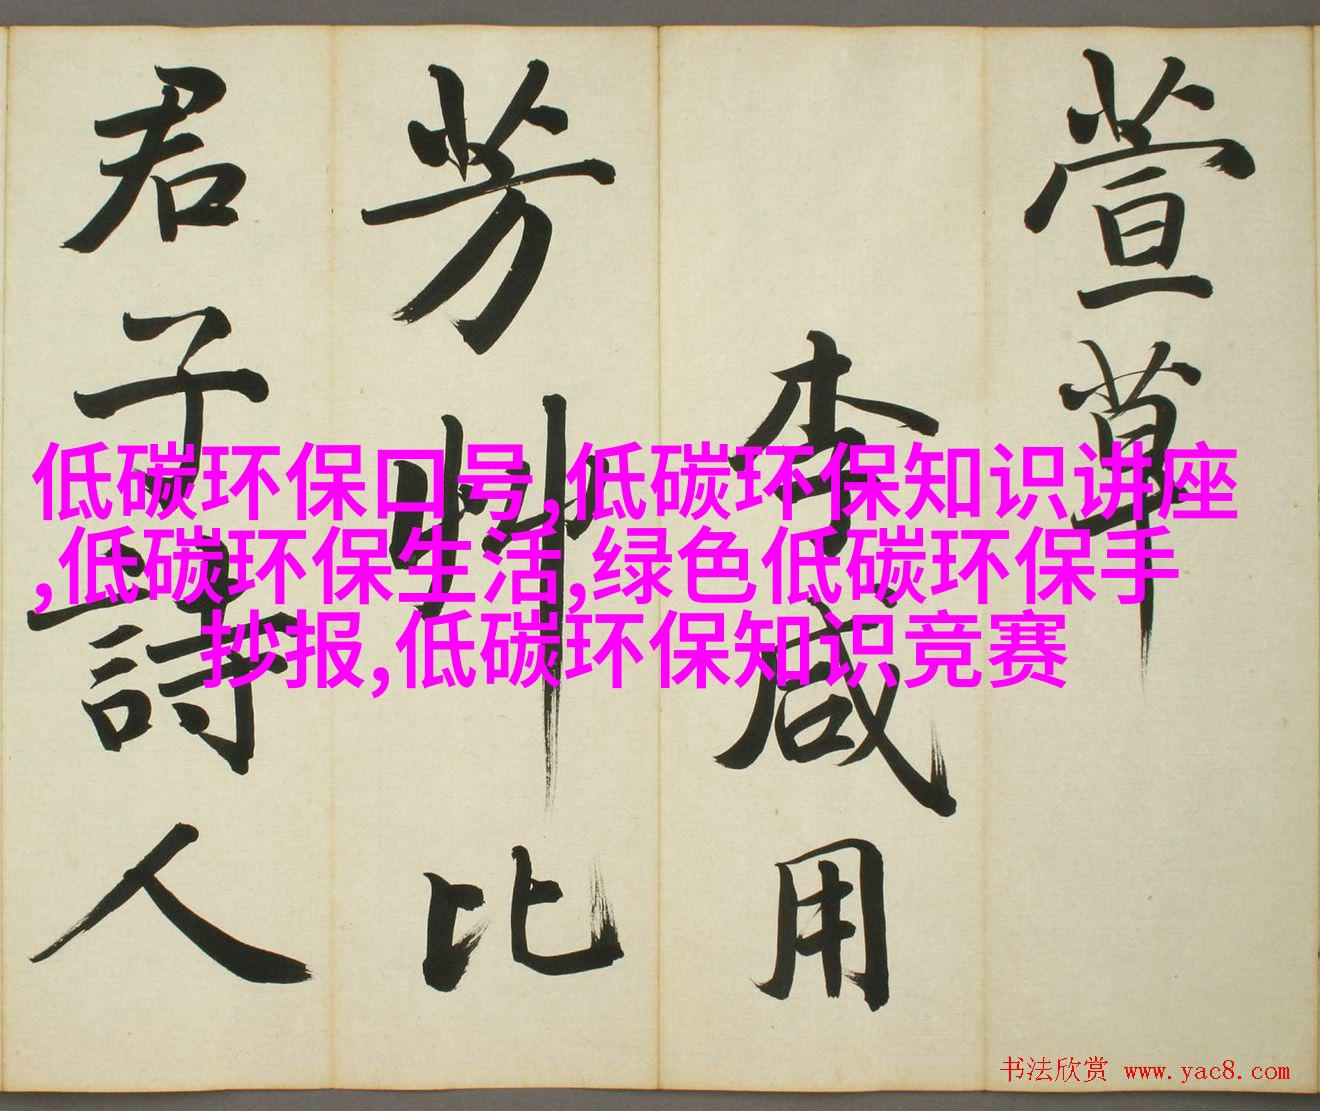 萱草
李咸用
芳艸比
君子詩人
低碳环保口号,低碳环保知识讲座
,低碳环保生活,绿色低碳环保手
抄报,低碳环保知识竞赛
书法欣赏 www.yac8.com